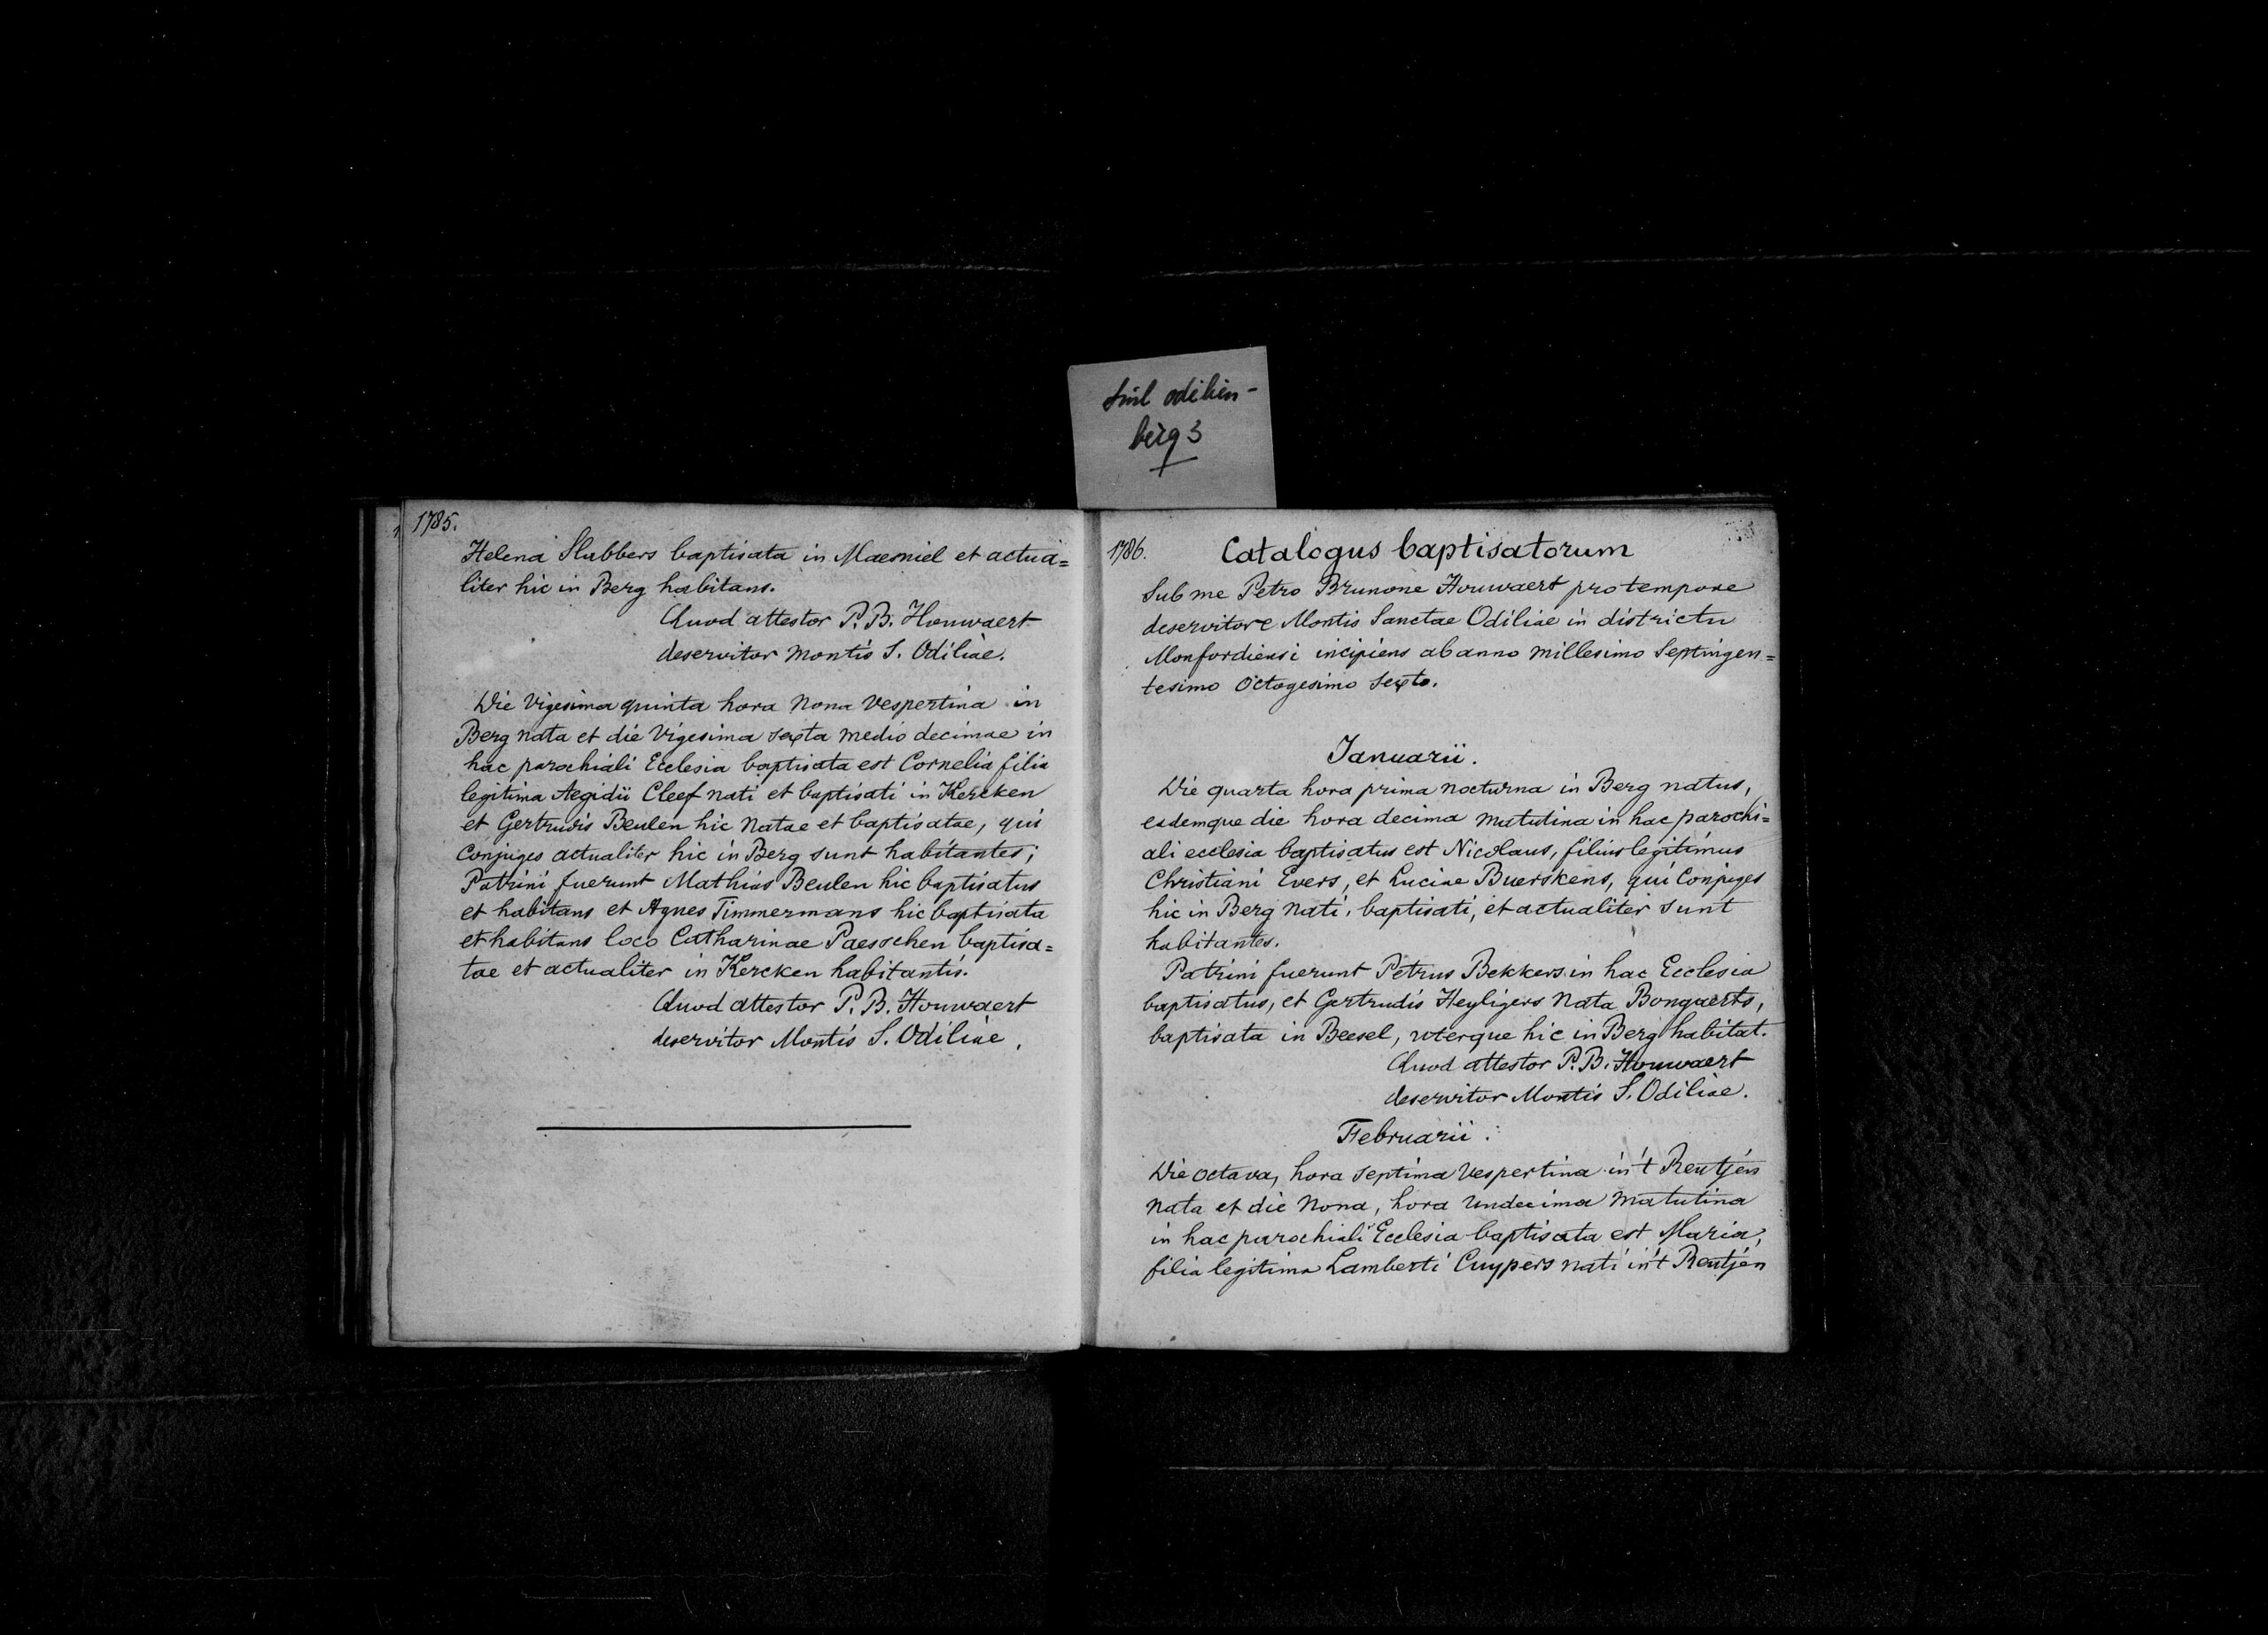 Sint odiliën-
berg 3
1785.
Helena Slabbers baptisata in Maesniel et actua=
liter hic in Berg habitans.
Quod attestor P. B. Houwaert
deservitor Montis S. Odiliae.
Die Vigesima quinta hora Nona Vespertina in
Berg nata et die Vigesima sexta medio decimae in
hac parochiali Ecclesia baptisata est Cornelia filia
legitima Aegidii Cleef nati et baptisati in Kercken
et Gertrudis Beulen hic Natae et baptisatae, qui
Conjuges actualiter hic in Berg sunt habitantes;
Patrini fuerunt Mathias Beulen hic baptisatus
et habitans et Agnes Timmermans hic baptisata
et habitans loco Catharinae Paesschen baptisa=
tae et actualiter in Kercken habitantis.
Quod attestor P. B. Houwaert
deservitor Montis S. Odiliae.
1786.
Catalogus baptisatorum
Sub me Petro Brunone Houwaert pro tempore
deservitore Montis Sanctae Odiliae in districtu
Monfordiensi incipiens ab anno millesimo Septingen=
tesimo Octogesimo Sexto.
Januarii.
Die quarta hora prima nocturna in Berg natus,
eademque die hora decima matutina in hac parochi=
ali ecclesia baptisatus est Nicolaus, filius legitimus
Christiani Evers, et Luciae Buerskens, qui Conjuges
hic in Berg Nati, baptisati, et actualiter sunt
habitantes.
Patrini fuerunt Petrus Bekkers in hac Ecclesia
baptisatus, et Gertrudis Heyligers Nata Bongaerts,
baptisata in Beesel, uterque hic in Berg habitat.
Quod attestor P. B. Houwaert
deservitor Montis S. Odiliae.
Februarii.
Die Octava, hora Septima Vespertina in't Reutjen
Nata et die Nona, hora Undecima Matutina
in hac parochiali Ecclesia baptisata est Maria,
filia legitima Lamberti Cuypers nati in't Reutjen